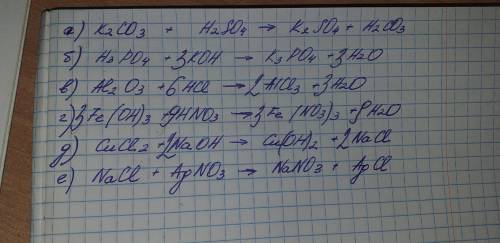 а) K2CO3 + H2SO4 → K2SO4 + H2CO3
б) H3PO4 + 3KOH → K3PO4 + 3H2O
в) Al2O3 + 6HCl → 2AlCl3 + 3H2O
г) 3Fe(OH)3 + 9HNO3 → 3Fe(NO3)3 + 9H2O
д) CuCl2 + 2NaOH → Cu(OH)2 + 2NaCl
е) NaCl + AgNO3 → NaNO3 + AgCl